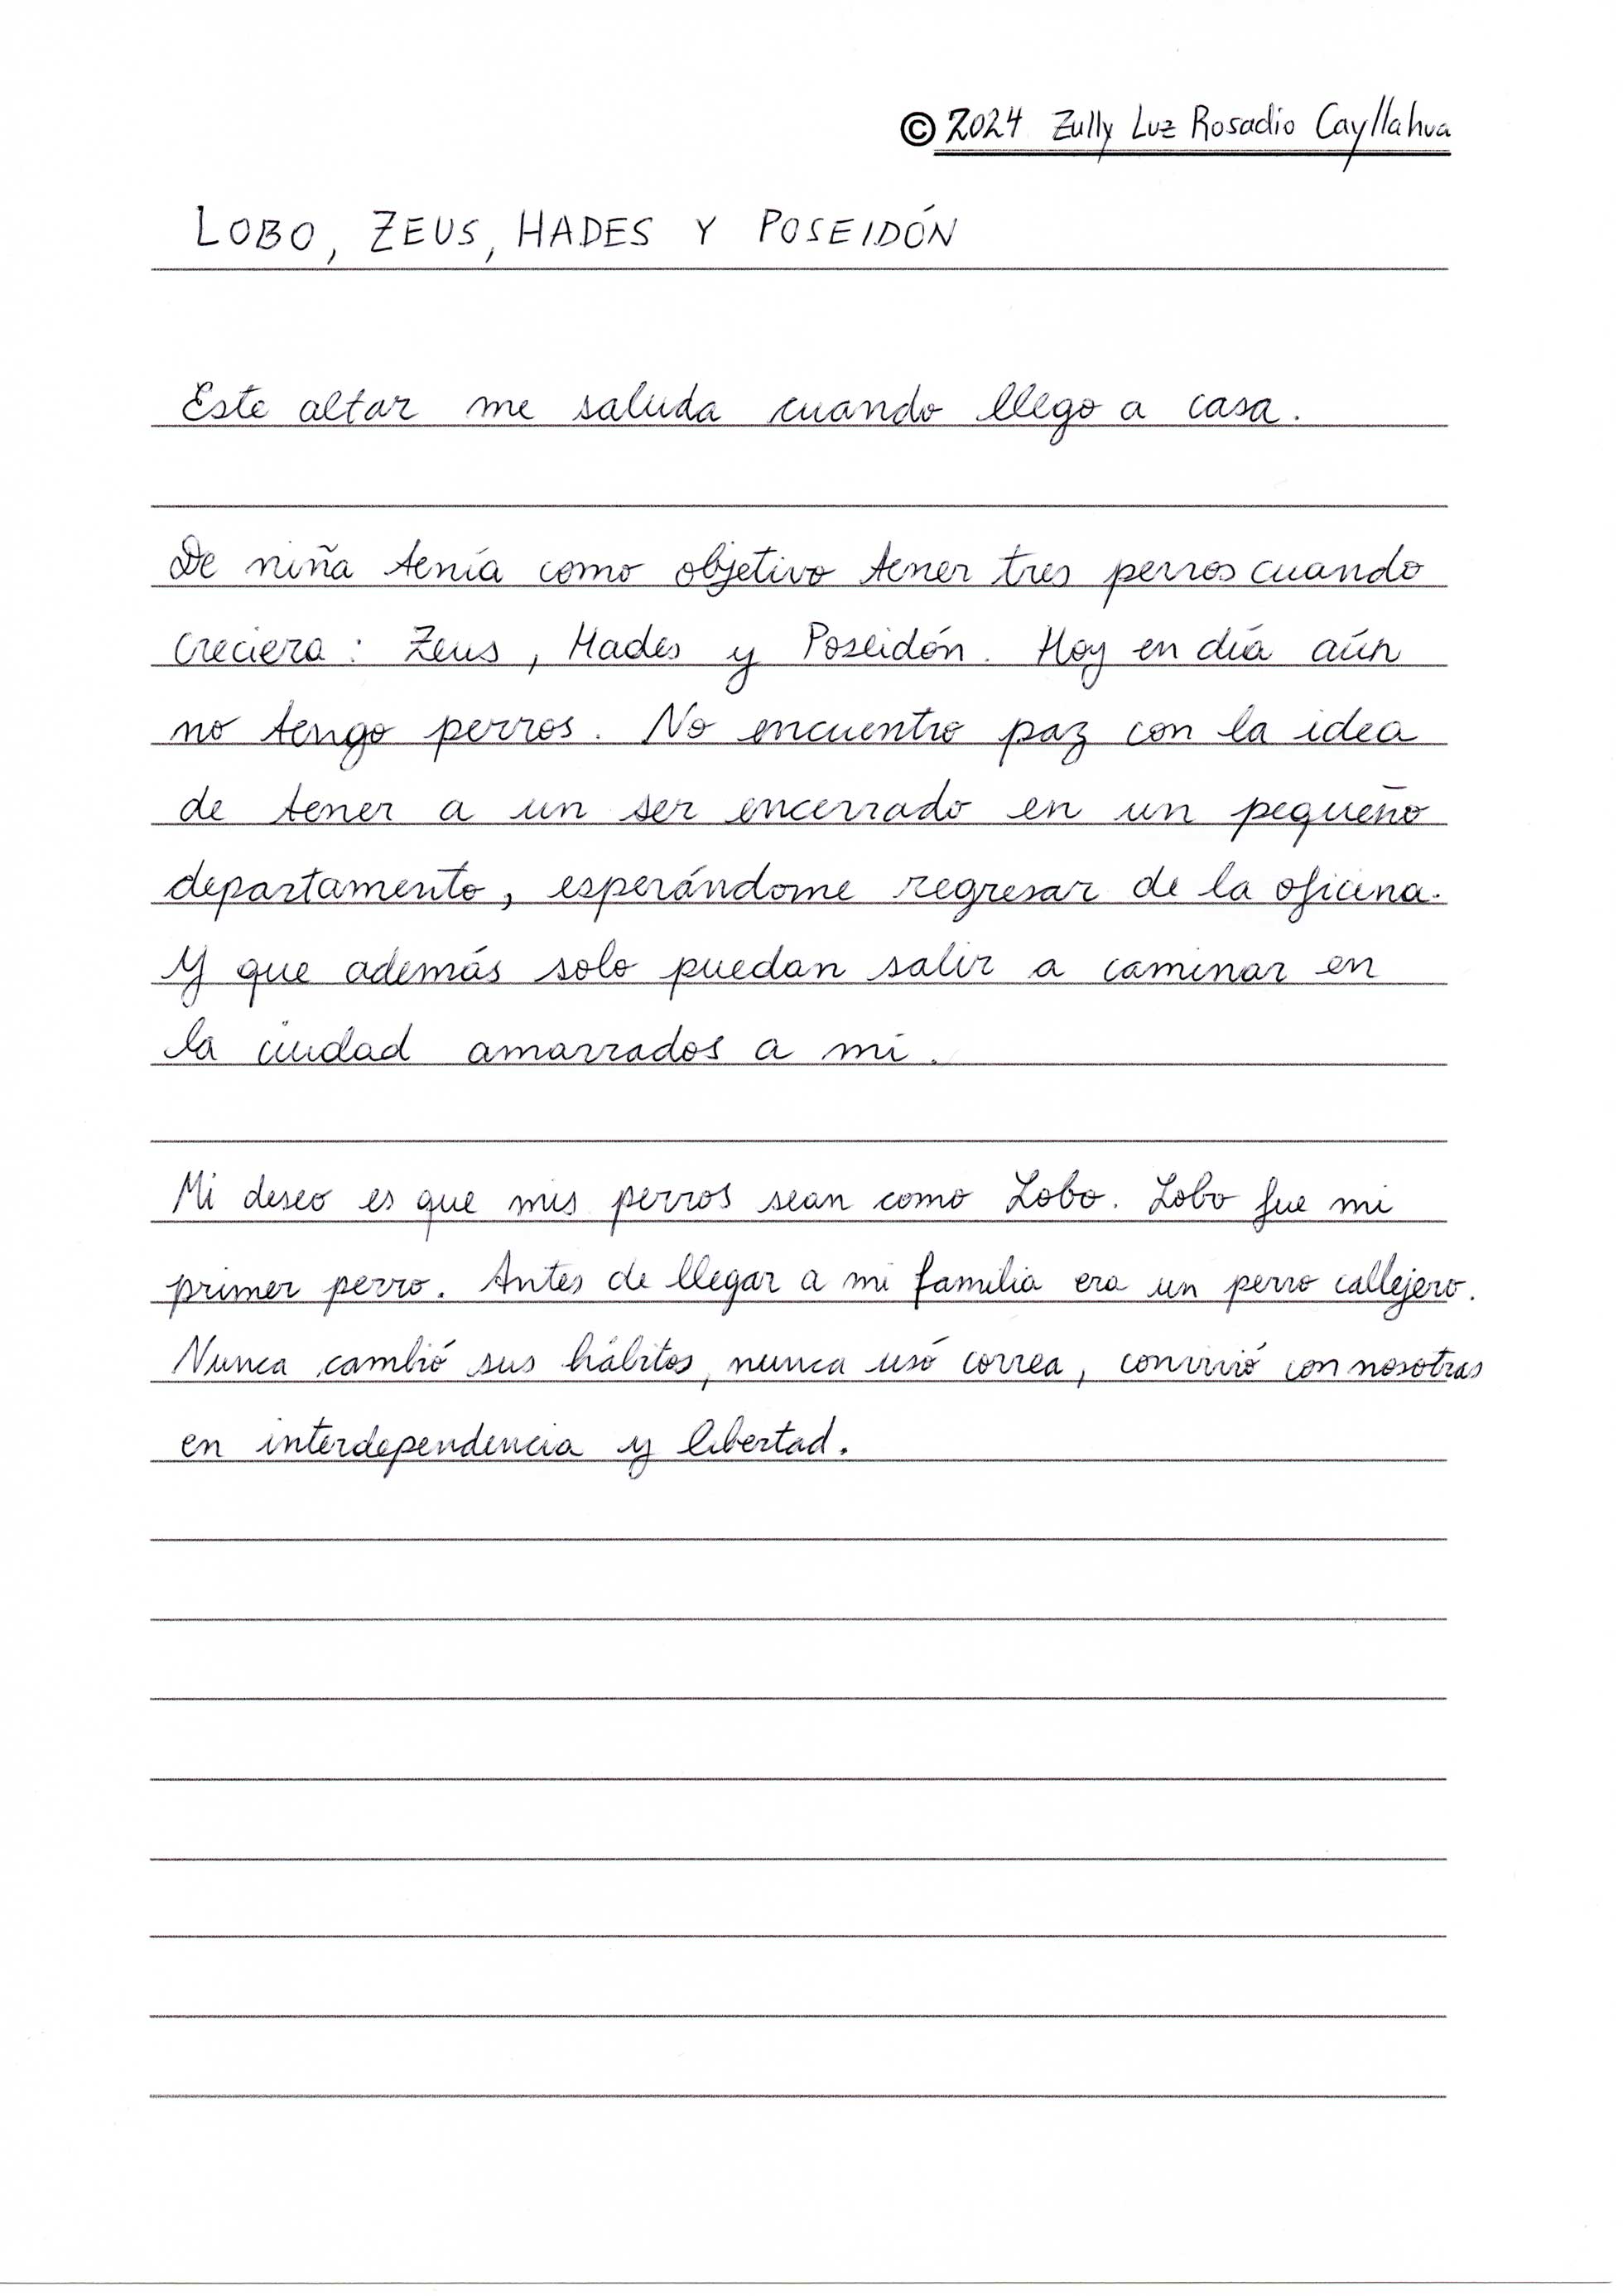 © 2024 Zully Luz Rosadio Cayllahua
LOBO, ZEUS, HADES Y POSEIDÓN
Este altar me saluda cuando llego a casa.
De niña tenía como objetivo tener tres perros cuando
creciera: Zeus, Hades y Poseidón. Hoy en día aún
no tengo perros. No encuentro paz con la idea
de tener a un ser encerrado en un pequeño
departamento, esperándome regresar de la oficina.
Y que además solo puedan salir a caminar en
la ciudad amarrados a mí.
Mi deseo es que mis perros sean como Lobo. Lobo fue mi
primer perro. Antes de llegar a mi familia era un perro callejero.
Nunca cambió sus hábitos, nunca usó correa, convivió con nosotras
en interdependencia y libertad.